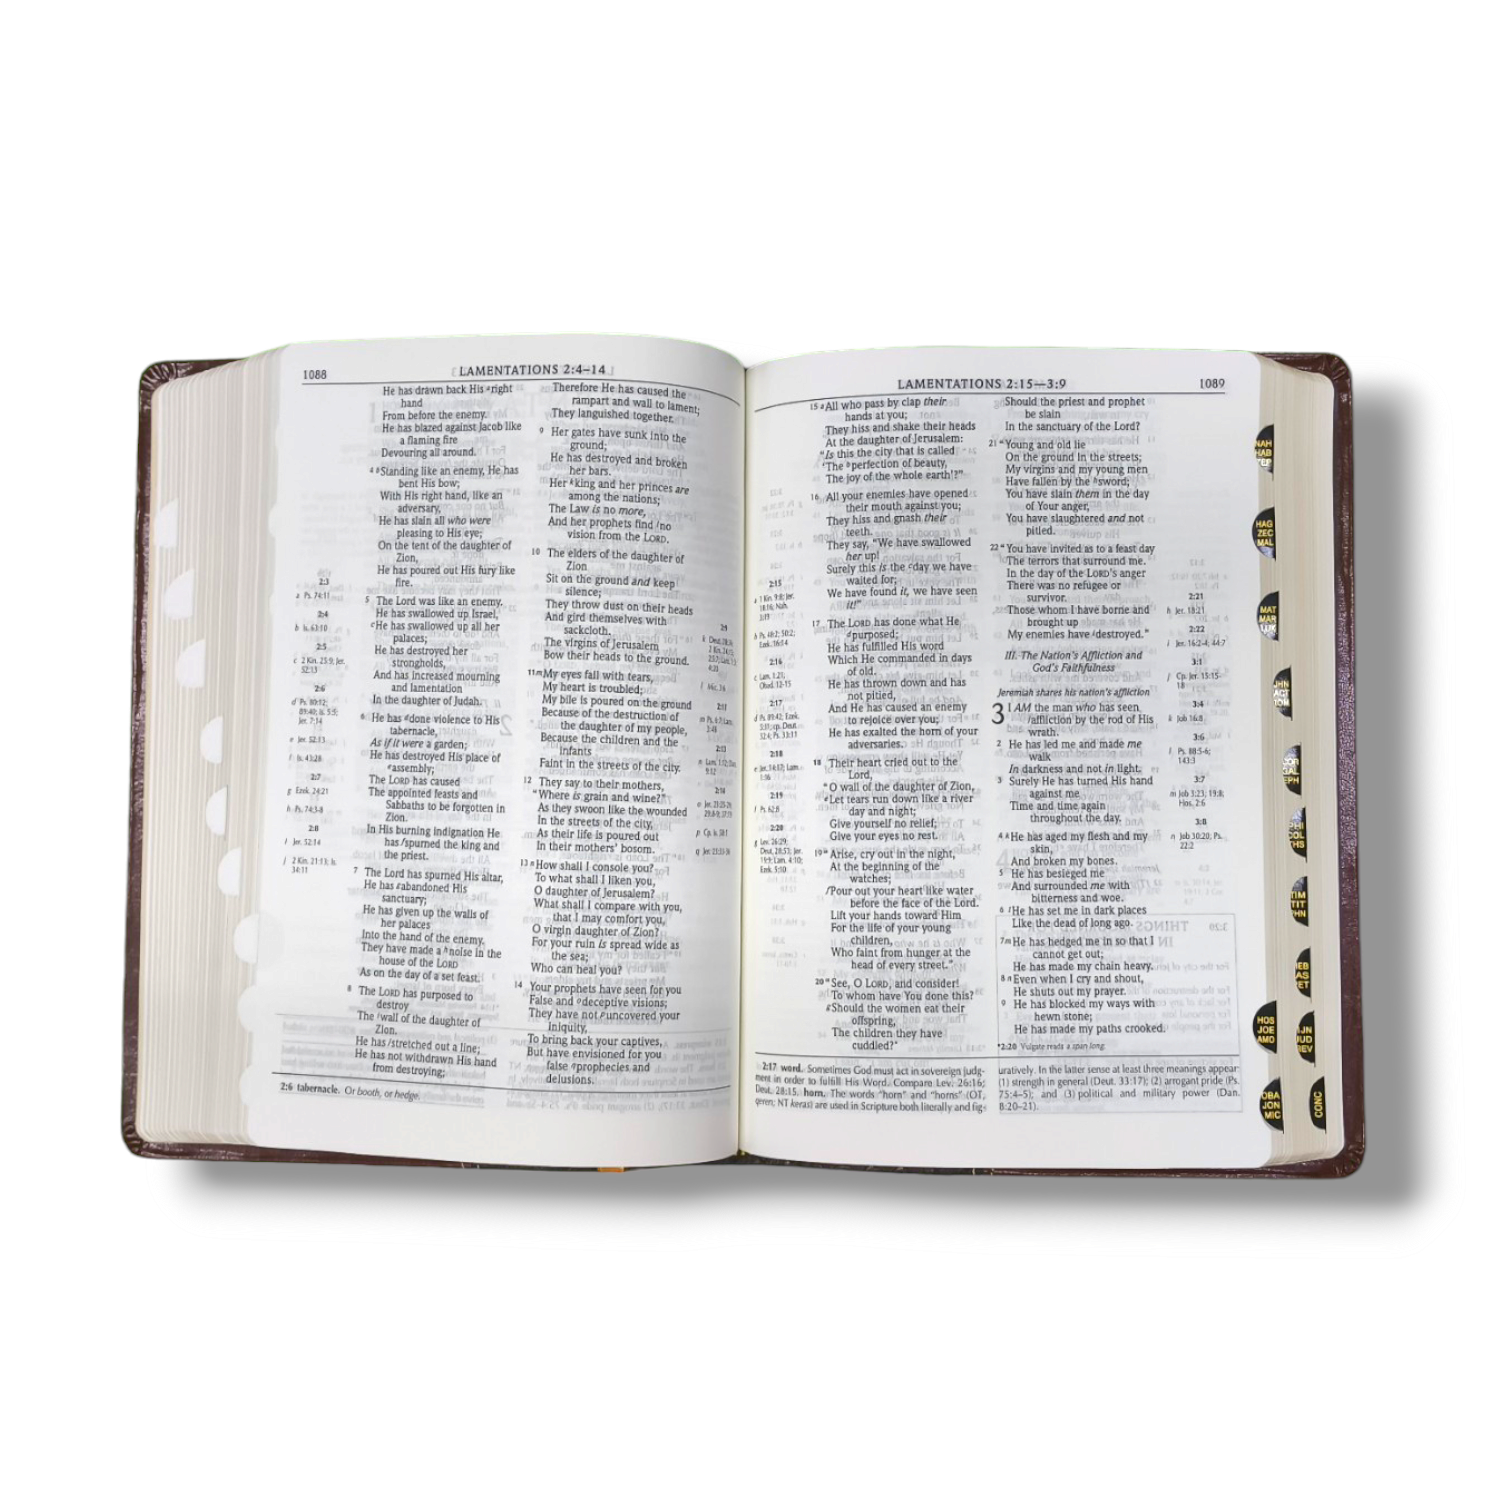 1088
LAMENTATIONS 2:4–14
He has drawn back His right
hand
From before the enemy.
He has blazed against Jacob like
a flaming fire
Devouring all around.
4 Standing like an enemy, He has
bent His bow;
With His right hand, like an
adversary,
He has slain all who were
pleasing to His eye;
On the tent of the daughter of
Zion,
He has poured out His fury like
fire.
5 The Lord was like an enemy.
He has swallowed up Israel,
He has swallowed up all her
palaces;
He has destroyed her
strongholds,
And has increased mourning
and lamentation
In the daughter of Judah.
6 He has done violence to His
tabernacle,
As if it were a garden;
He has destroyed His place of
assembly;
The LORD has caused
The appointed feasts and
Sabbaths to be forgotten in
Zion.
In His burning indignation He
has spurned the king and
the priest.
7 The Lord has spurned His altar,
He has abandoned His
sanctuary;
He has given up the walls of
her palaces
Into the hand of the enemy.
They have made a noise in the
house of the LORD
As on the day of a set feast.
8 The LORD has purposed to
destroy
The wall of the daughter of
Zion.
He has stretched out a line;
He has not withdrawn His hand
from destroying;
Therefore He has caused the
rampart and wall to lament;
They languished together.
9 Her gates have sunk into the
ground;
He has destroyed and broken
her bars.
Her king and her princes are
among the nations;
The Law is no more,
And her prophets find no
vision from the LORD.
10 The elders of the daughter of
Zion
Sit on the ground and keep
silence;
They throw dust on their heads
And gird themselves with
sackcloth.
The virgins of Jerusalem
Bow their heads to the ground.
11 My eyes fail with tears,
My heart is troubled;
My bile is poured on the ground
Because of the destruction of
the daughter of my people,
Because the children and the
infants
Faint in the streets of the city.
12 They say to their mothers,
"Where is grain and wine?"
As they swoon like the wounded
In the streets of the city,
As their life is poured out
In their mothers' bosom.
13 How shall I console you?
To what shall I liken you,
O daughter of Jerusalem?
What shall I compare with you,
that I may comfort you,
O virgin daughter of Zion?
For your ruin is spread wide as
the sea;
Who can heal you?
14 Your prophets have seen for you
False and deceptive visions;
They have not uncovered your
iniquity,
To bring back your captives,
But have envisioned for you
false prophecies and
delusions.
2:3
a Ps. 74:11
2:4
b Is. 63:10
2:5
c 2 Kin. 25:9; Jer.
52:13
2:6
d Ps. 80:12;
89:40; Is. 5:5;
Jer. 7:14
e Jer. 52:13
f Is. 43:28
2:7
g Ezek. 24:21
h Ps. 74:3-8
2:8
i Jer. 52:14
j 2 Kin. 21:13; Is.
34:11
2:6 tabernacle. Or booth, or hedge.
LAMENTATIONS 2:15—3:9
1089
15 All who pass by clap their
hands at you;
They hiss and shake their heads
At the daughter of Jerusalem:
"Is this the city that is called
'The perfection of beauty,
The joy of the whole earth'?"
16 All your enemies have opened
their mouth against you;
They hiss and gnash their
teeth.
They say, "We have swallowed
her up!
Surely this is the day we have
waited for;
We have found it, we have seen
it!"
17 The LORD has done what He
purposed;
He has fulfilled His word
Which He commanded in days
of old.
He has thrown down and has
not pitied,
And He has caused an enemy
to rejoice over you;
He has exalted the horn of your
adversaries.
18 Their heart cried out to the
Lord,
"O wall of the daughter of Zion,
Let tears run down like a river
day and night;
Give yourself no relief;
Give your eyes no rest.
19 "Arise, cry out in the night,
At the beginning of the
watches;
Pour out your heart like water
before the face of the Lord.
Lift your hands toward Him
For the life of your young
children,
Who faint from hunger at the
head of every street."
20 "See, O LORD, and consider!
To whom have You done this?
Should the women eat their
offspring,
The children they have
cuddled?*
Should the priest and prophet
be slain
In the sanctuary of the Lord?
21 "Young and old lie
On the ground in the streets;
My virgins and my young men
Have fallen by the sword;
You have slain them in the day
of Your anger,
You have slaughtered and not
pitied.
22 "You have invited as to a feast day
The terrors that surround me.
In the day of the LORD's anger
There was no refugee or
survivor.
Those whom I have borne and
brought up
My enemies have destroyed."
III. The Nation's Affliction and
God's Faithfulness
Jeremiah shares his nation's affliction
3 I AM the man who has seen
affliction by the rod of His
wrath.
2 He has led me and made me
walk
In darkness and not in light.
3 Surely He has turned His hand
against me
Time and time again
throughout the day.
4 He has aged my flesh and my
skin,
And broken my bones.
5 He has besieged me
And surrounded me with
bitterness and woe.
6 He has set me in dark places
Like the dead of long ago.
7 He has hedged me in so that I
cannot get out;
He has made my chain heavy.
8 Even when I cry and shout,
He shuts out my prayer.
9 He has blocked my ways with
hewn stone;
He has made my paths crooked.
*2:20 Vulgate reads a span long.
2:21
h Jer. 18:21
2:22
i Jer. 16:2-4; 44:7
3:1
j Cp. Jer. 15:15-
18
3:4
k Job 16:8
3:6
l Ps. 88:5-6;
143:3
3:7
m Job 3:23; 19:8;
Hos. 2:6
3:8
n Job 30:20; Ps.
22:2
2:17 word. Sometimes God must act in sovereign judg-
ment in order to fulfill His Word. Compare Lev. 26:16;
Deut. 28:15. horn. The words "horn" and "horns" (OT,
qeren; NT keras) are used in Scripture both literally and fig-
uratively. In the latter sense at least three meanings appear:
(1) strength in general (Deut. 33:17); (2) arrogant pride (Ps.
75:4–5); and (3) political and military power (Dan.
8:20–21).
NAH
HAB
HAG
ZEC
MAL
MAT
MAR
HOS
JOE
AMO
OBA
JON
MIC
CONC